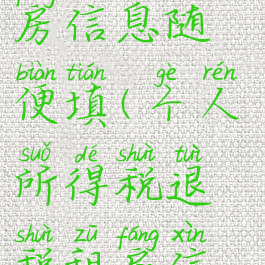 房信息随
biàn tián gè rén
便填(个人
suǒ dé shuì tuì
所得税退
shuì zū fáng xìn
税租房信